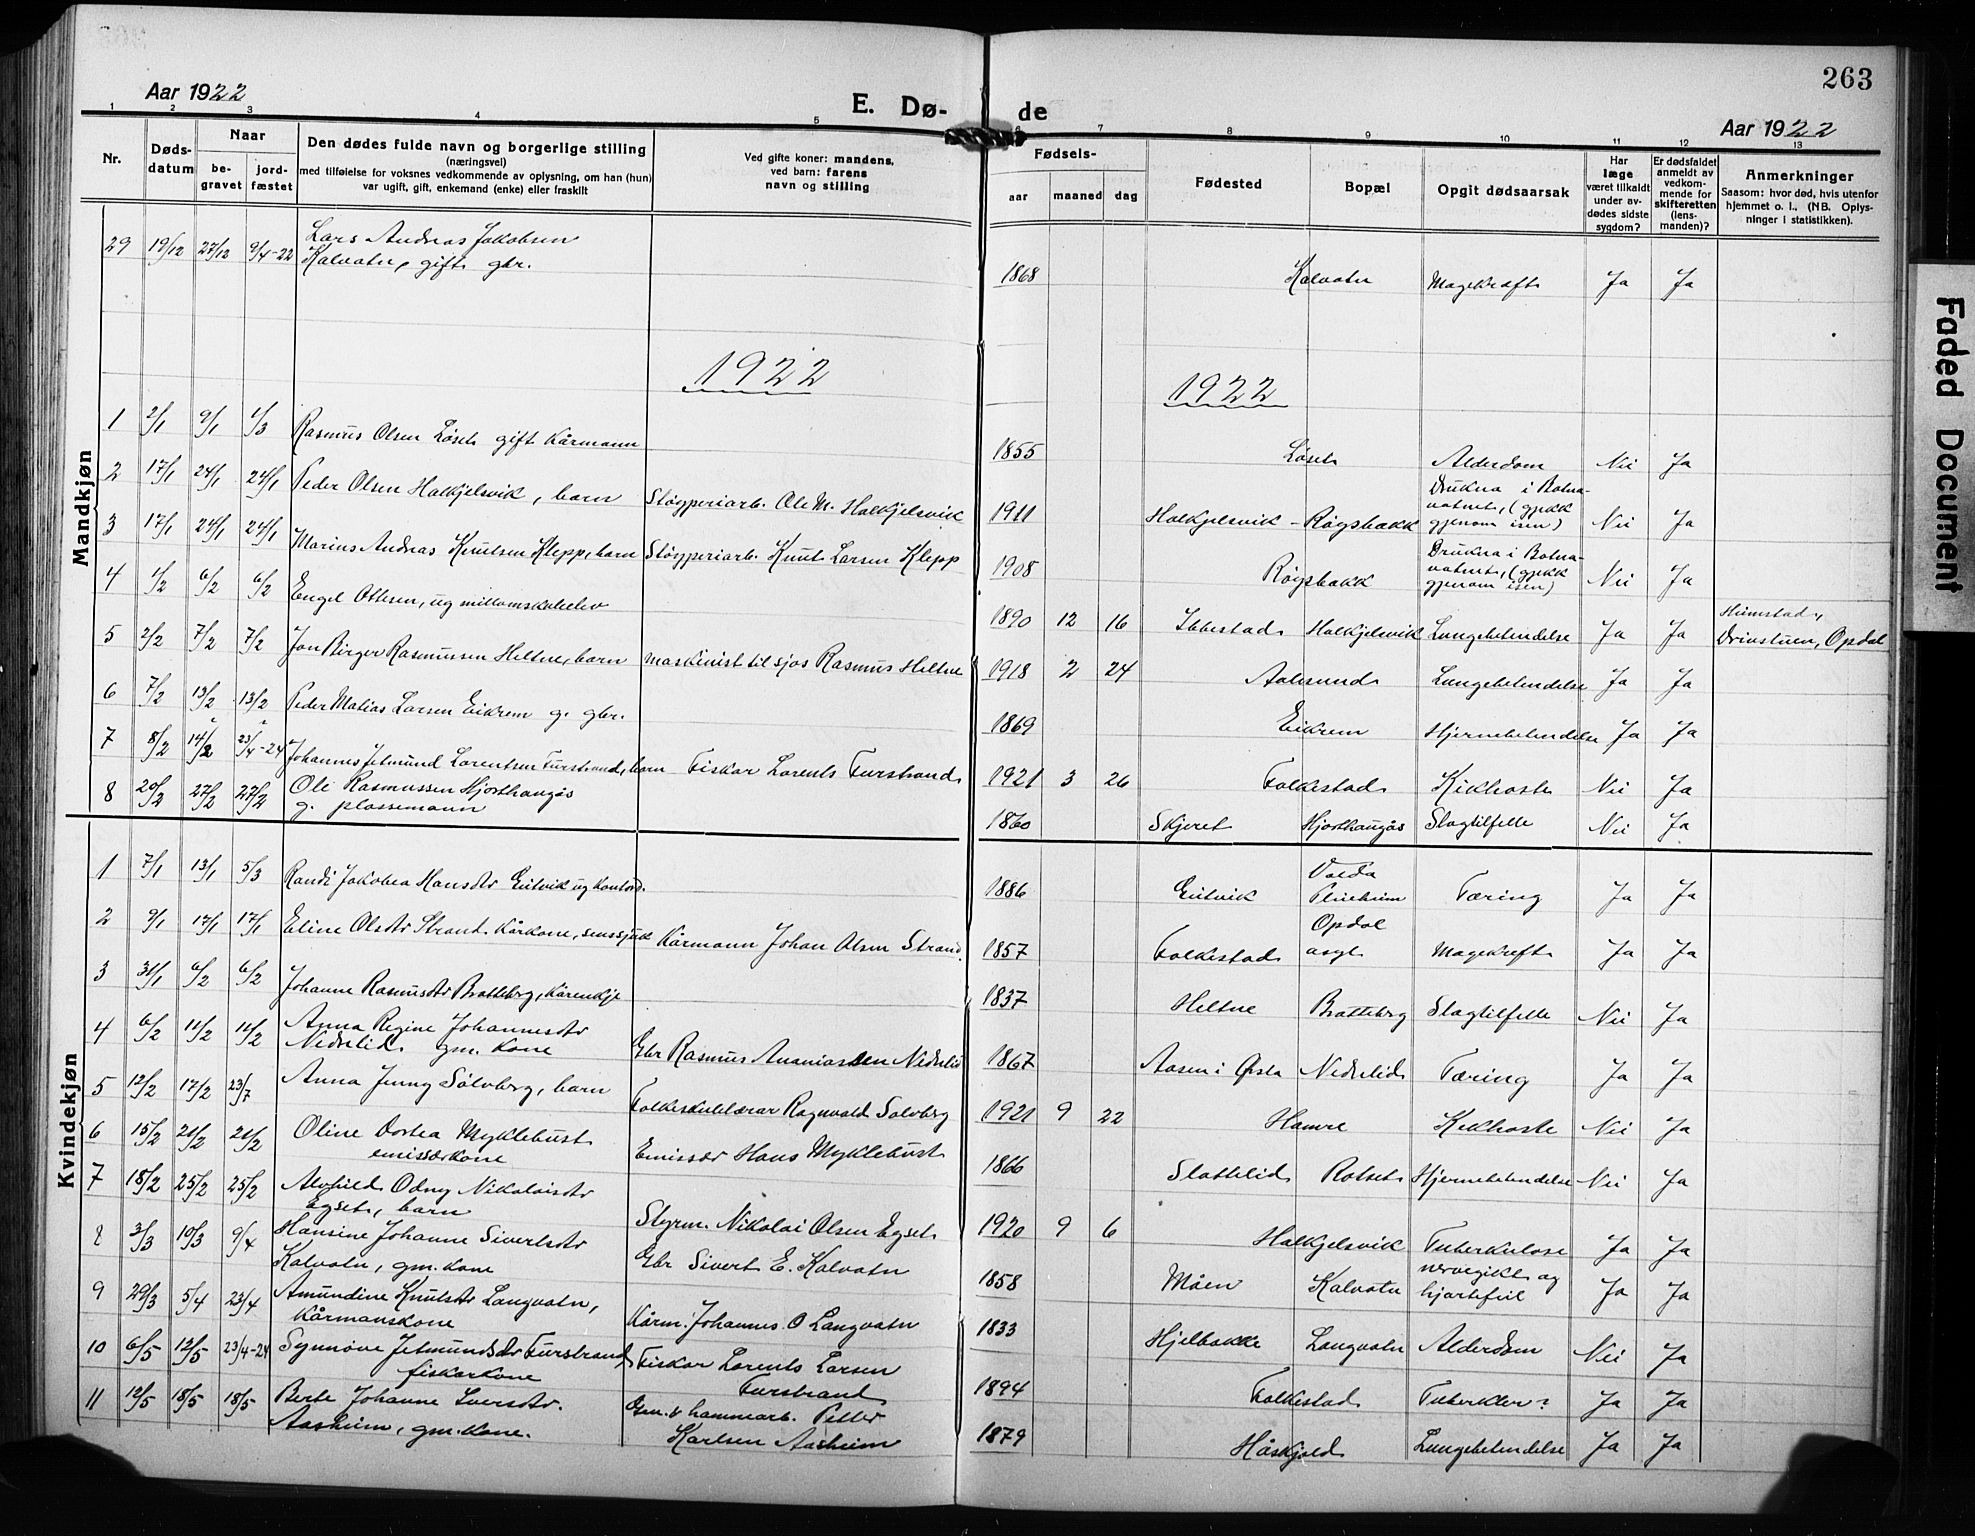 263
Aar 1922
E. Dø-
de
Aar 1922
1 2 3 4 5 6 7 8 9 10 11 12 13
Nr.
Døds-
datum
Naar
be-
gravet
jord-
fæstet
Den dødes fulde navn og borgerlige stilling
(næringsvei)
med tilføielse for voksnes vedkommende av oplysning, om han (hun)
var ugift, gift, enkemand (enke) eller fraskilt
Ved gifte koner: mandens,
ved barn: farens
navn og stilling
Fødsels-
aar
maaned
dag
Fødested
Bopæl
Opgit dødsaarsak
Har
læge
været tilkaldt
under av-
dødes sidste
sygdom?
Er dødsfaldet
anmeldt av
vedkom-
mende for
skifteretten
(lens-
manden)?
Anmerkninger
Saasom: hvor død, hvis utenfor
hjemmet o. l., (NB. Oplys-
ninger i statistikken).
29 19/12 27/12 9/4-22 Lars Andreas Jakobsen
Kalvatn, gift gbr. 1868 Kalvatn Magekræft Ja Ja
1922 1922
Mandkjøn
1 2/1 9/1 1/3 Rasmus Olsen Løset gift Kårmann 1855 Løset Alderdom Nei Ja
2 17/1 24/1 24/1 Peder Olsen Halkjelsvik, barn Støyperiarb. Ole M. Halkjelsvik 1911 Halkjelsvik - Røysbakk Drukna i Botna-
vatnet, (gjekk
gjenom isen) Nei Ja
3 17/1 24/1 24/1 Marius Andreas Knutsen Klepp, barn Støyperiarb. Knut Larsen Klepp 1908 Røysbakk Drukna i Botna-
vatnet, (gjekk
gjenom isen) Nei Ja
4 1/2 6/2 6/2 Engel Ottesen, ug millomskuleelev 1890 12 16 Ibbestad Halkjelsvik Lungebetendelse Ja Ja
Drivstuen, Opdal
5 2/2 7/2 7/2 Jon Birger Rasmussen Heltne, barn maskinist til sjøs Rasmus Heltne 1918 2 24 Aalesund Lungebetendelse Ja Ja
6 7/2 13/2 13/2 Peder Matias Larsen Eikrem g. gbr. 1869 Eikrem Hjernebetendelse Ja Ja
7 8/2 14/2 23/4-24 Johannes Jetmund Lorentsen Furstrand, barn Fiskar Lorents Furstrand 1921 3 26 Folkestad Kikhoste Nei Ja
8 20/2 27/2 27/2 Ole Rasmussen Hjorthaugås
g. plassemann 1860 Skjeret Hjorthaugås Slagtilfelle Nei Ja
Kvindekjøn
1 7/1 13/1 5/3 Randi Jakobea Hansdtr Eitvik ug kontord. 1886 Eitvik Volda
Pleieheim Tæring Ja Ja
2 9/1 17/1 17/1 Eline Olsdtr Strand. Kårkone, sinssjuk Kårmann Johan Olsen Strand. 1857 Folkestad Opdal
asyl Magekreft Ja Ja
3 31/1 6/2 6/2 Johanne Rasmusdtr Bratteberg, kårenkje 1837 Heltne Bratteberg Slagtilfelle Nei Ja
4 6/2 11/2 11/2 Anna Regine Johannesdtr
Nedrelid gm. kone Gbr Rasmus Ananiassen Nedrelid 1867 Aasen i Ørsta Nedrelid Tæring Ja Ja
5 12/2 17/2 23/7 Anna Jenny Solvberg, barn Folkeskulelærar Ragnvald Solvberg 1921 9 22 Hamre Kikhoste Nei Ja
6 15/2 21/2 21/2 Oline Dortea Myklebust
emissærkone Emissær Hans Myklebust 1866 Slottelid Rotset Hjernebetendelse Nei Ja
7 18/2 25/2 25/2 Alvhild Odny Nikolaisdtr
Egset, barn Styrm. Nikolai Olsen Egset 1920 9 6 Halkjelsvik Tuberkulose Ja Ja
8 3/3 10/3 9/4 Hansine Johanne Sivertsdtr
Kalvatn, gm. kone Gbr Sivert E. Kalvatn 1858 Måen Kalvatn nervegikt og
hjartefeil Ja Ja
9 29/3 5/4 23/4 Amundine Knutsdtr Langvatn,
kårmanskone Kårm. Johannes O Langvatn 1833 Hjelbakke Langvatn Alderdom Nei Ja
10 6/5 12/5 23/4-24 Synnøve Jetmundsdtr Furstrand
fiskarkone Fiskar Lorents Larsen
Furstrand 1894 Folkestad Tuberkler? Ja Ja
11 12/5 18/5 18/5 Berte Johanne Iversdtr.
Aasheim, gm. kone. Gm. & hammarb. Petter
Karlsen Aasheim 1879 Håskjold Lungebetendelse Ja Ja
Faded Document